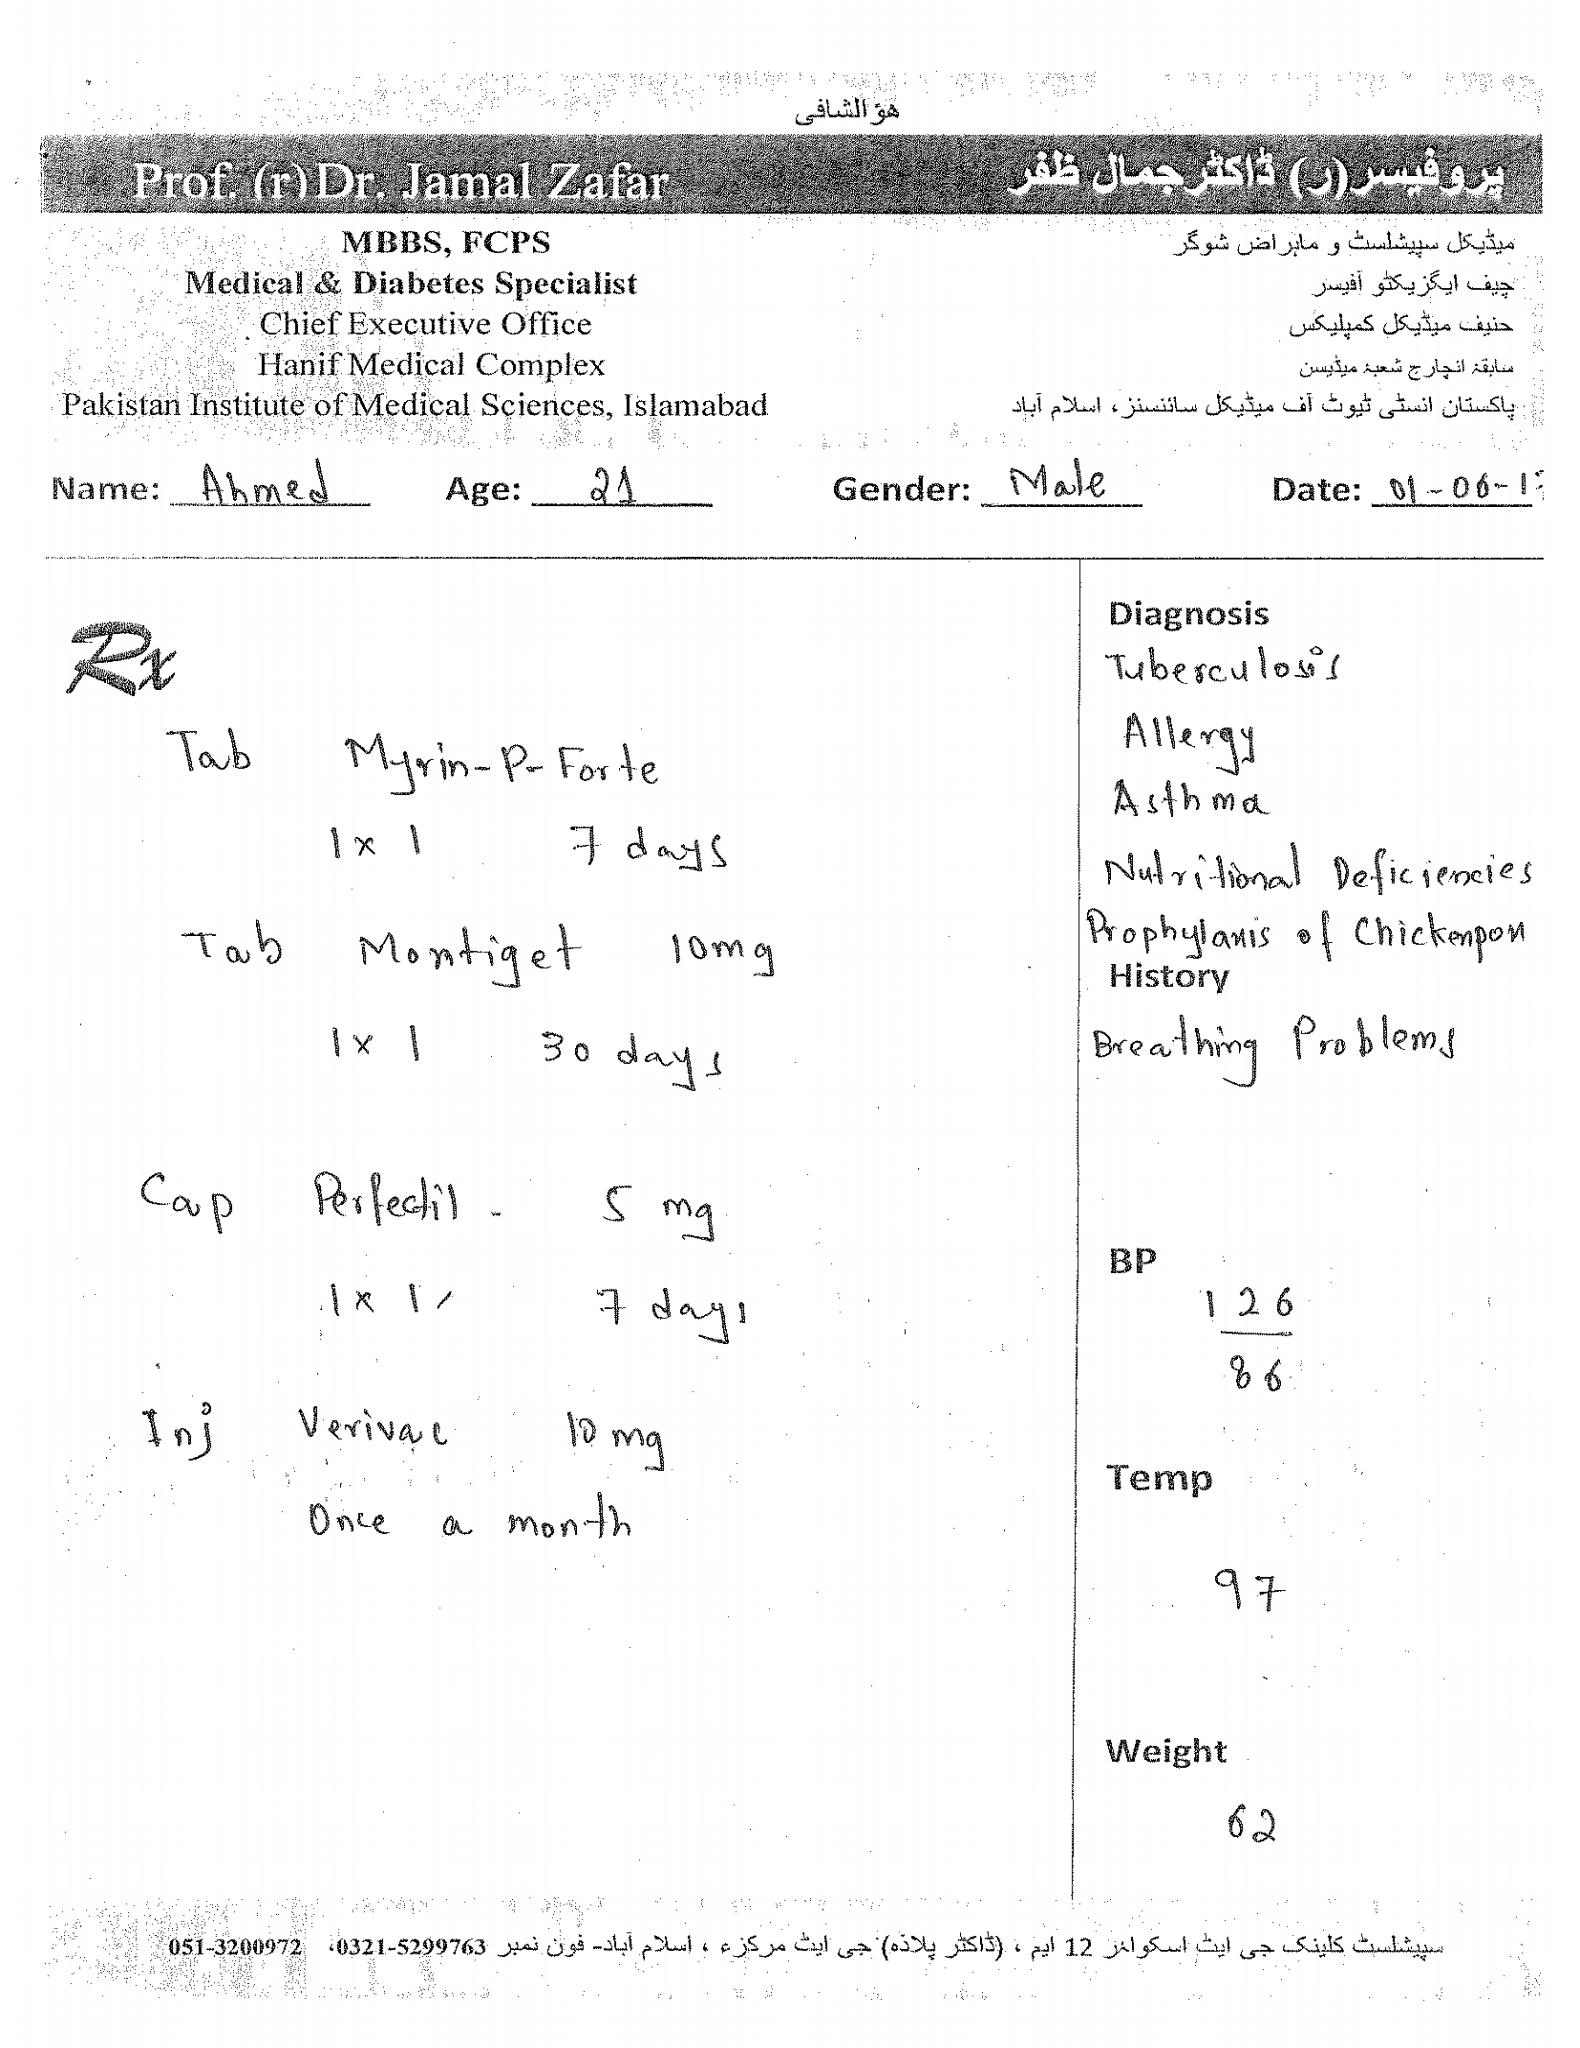 ھو الشافی
Prof. (r) Dr. Jamal Zafar
پروفیسر(ر) ڈاکٹر جمال ظفر
MBBS, FCPS
میڈیکل سپیشلسٹ و ماہر امراض شوگر
Medical & Diabetes Specialist
چیف ایگزیکٹو آفیسر
Chief Executive Office
حنیف میڈیکل کمپلیکس
Hanif Medical Complex
سابقہ انچارج شعبہ میڈیسن
Pakistan Institute of Medical Sciences, Islamabad
پاکستان انسٹی ٹیوٹ آف میڈیکل سائنسنز، اسلام آباد
Name: Ahmed Age: 21 Gender: Male Date: 01-06-1
Rx
Tab Myrin-P-Forte
1x1 7 days
Tab Montiget 10mg
1x1 30 days
Cap Perfectil - 5 mg
1x1 7 days
Inj Verivac 10 mg
Once a month
Diagnosis
Tuberculosis
Allergy
Asthma
Nutritional Deficiencies
Prophylaxis of Chickenpox
History
Breathing Problems
BP
126
86
Temp
97
Weight
62
سپیشلسٹ کلینک جی ایٹ اسکوائر 12 ایم ، (ڈاکٹر پلازہ) جی ایٹ مرکزء ، اسلام آباد- فون نمبر 0321-5299763، 051-3200972